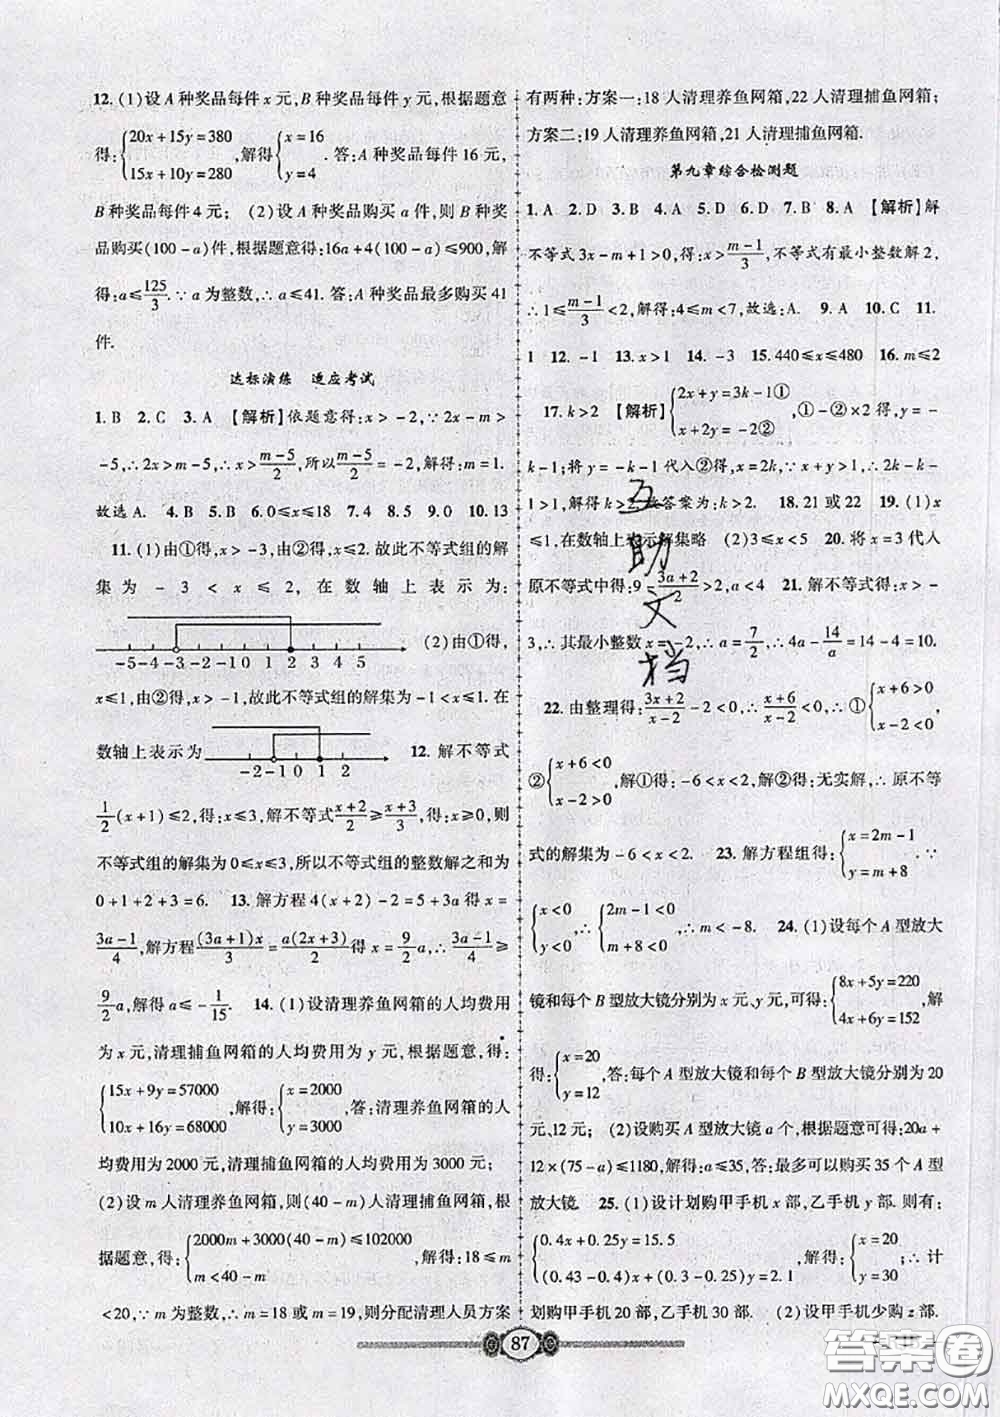 12. (1)设 A 种奖品每件 x 元, B 种奖品每件 y 元, 根据题意
得: {20x+15y=380 15x+10y=280, 解得{x=16 y=4. 答: A 种奖品每件 16 元,
B 种奖品每件 4 元; (2)设 A 种奖品购买 a 件, 则 B 种奖
品购买(100-a)件, 根据题意得: 16a+4(100-a)≤900, 解
得: a≤125/3. ∵a 为整数, ∴a≤41. 答: A 种奖品最多购买 41
件.
达标演练 适应考试
1. B 2. C 3. A 【解析】依题意得: x>-2, ∵2x-m>
-5, ∴2x>m-5, ∴x>(m-5)/2, 所以(m-5)/2=-2, 解得: m=1.
故选 A. 4. B 5. B 6. 0≤x≤18 7. 4 8. 5 9. 0 10. 13
11. (1)由①得, x>-3, 由②得, x≤2. 故此不等式组的解
集为-3<x≤2, 在数轴上表示为:
-5 -4 -3 -2 -1 0 1 2 3 4 (2)由①得,
x≤1, 由②得, x>-1, 故此不等式组的解集为-1<x≤1. 在
数轴上表示为 -2 -1 0 1 2 12. 解不等式
1/2(x+1)≤2, 得: x≤3, 解不等式(x+2)/2≥(x+3)/3, 得: x≥0, 则
不等式组的解集为 0≤x≤3, 所以不等式组的整数解之和为
0+1+2+3=6. 13. 解方程 4(x+2)-2=5+3a 得 x=
(3a-1)/4, 解方程(3a+1)x/3=a(2x+3)/2 得 x=9/2 a, ∴(3a-1)/4≥
9/2 a, 解得 a≤-1/15. 14. (1)设清理养鱼网箱的人均费用
为 x 元, 清理捕鱼网箱的人均费用为 y 元, 根据题意, 得:
{15x+9y=57000 10x+16y=68000, 解得: {x=2000 y=3000, 答: 清理养鱼网箱的人
均费用为 2000 元, 清理捕鱼网箱的人均费用为 3000 元;
(2)设 m 人清理养鱼网箱, 则(40-m)人清理捕鱼网箱, 根
据题意, 得: {2000m+3000(40-m)≤102000 m<40-m, 解得: 18≤m
<20, ∵m 为整数, ∴m=18 或 m=19, 则分配清理人员方案
有两种: 方案一: 18 人清理养鱼网箱, 22 人清理捕鱼网箱;
方案二: 19 人清理养鱼网箱, 21 人清理捕鱼网箱.
第九章综合检测题
1. A 2. D 3. B 4. A 5. D 6. D 7. B 8. A 【解析】解
不等式 3x-m+1>0, 得: x>(m-1)/3, ∵不等式有最小整数解 2,
∴1≤(m-1)/3<2, 解得: 4≤m<7, 故选: A. 9. A 10. C 11.
1 12. -1 13. x>1 14. -3 15. 440≤x≤480 16. m≤2
17. k>2 【解析】{2x+y=3k-1① x+2y=-2②, ①-②×2 得, y=-
k-1; 将 y=-k-1 代入②得, x=2k, ∵x+y>1, ∴2k-k-
1>1, 解得 k>2, 故答案为: k>2. 18. 21 或 22 19. (1)x
≤1, 在数轴上表示解集略 (2)3≤x<5 20. 将 x=3 代入
原不等式中得: 9-(3a+2)/2>2, a<4 21. 解不等式得: x>-
3, ∴其最小整数 x=-2, ∴a=7/2, ∴4a-14/a=14-4=10.
22. 由整理得: (3x+2)/(x-2)-2<0, ∴(x+6)/(x-2)<0, ∴①{x+6>0 x-2<0,
②{x+6<0 x-2>0, 解①得: -6<x<2, 解②得: 无实解, ∴原不等
式的解集为-6<x<2. 23. 解方程组得: {x=2m-1 y=m+8. ∵
{x<0 y<0, ∴{2m-1<0 m+8<0, ∴m<-8. 24. (1)设每个 A 型放大
镜和每个 B 型放大镜分别为 x 元、y 元, 可得: {8x+5y=220 4x+6y=152, 解
得: {x=20 y=12, 答: 每个 A 型放大镜和每个 B 型放大镜分别为 20
元、12 元; (2)设购买 A 型放大镜 a 个, 根据题意可得: 20a+
12×(75-a)≤1180, 解得: a≤35, 答: 最多可以购买 35 个 A 型
放大镜. 25. (1)设计划购甲手机 x 部, 乙手机 y 部. 则有:
{0.4x+0.25y=15.5 (0.43-0.4)x+(0.3-0.25)y=2.1, 解得: {x=20 y=30; ∴计
划购甲手机 20 部, 乙手机 30 部. (2)设甲手机少购 z 部.
互助文档
87
答案圈
MXQE.COM